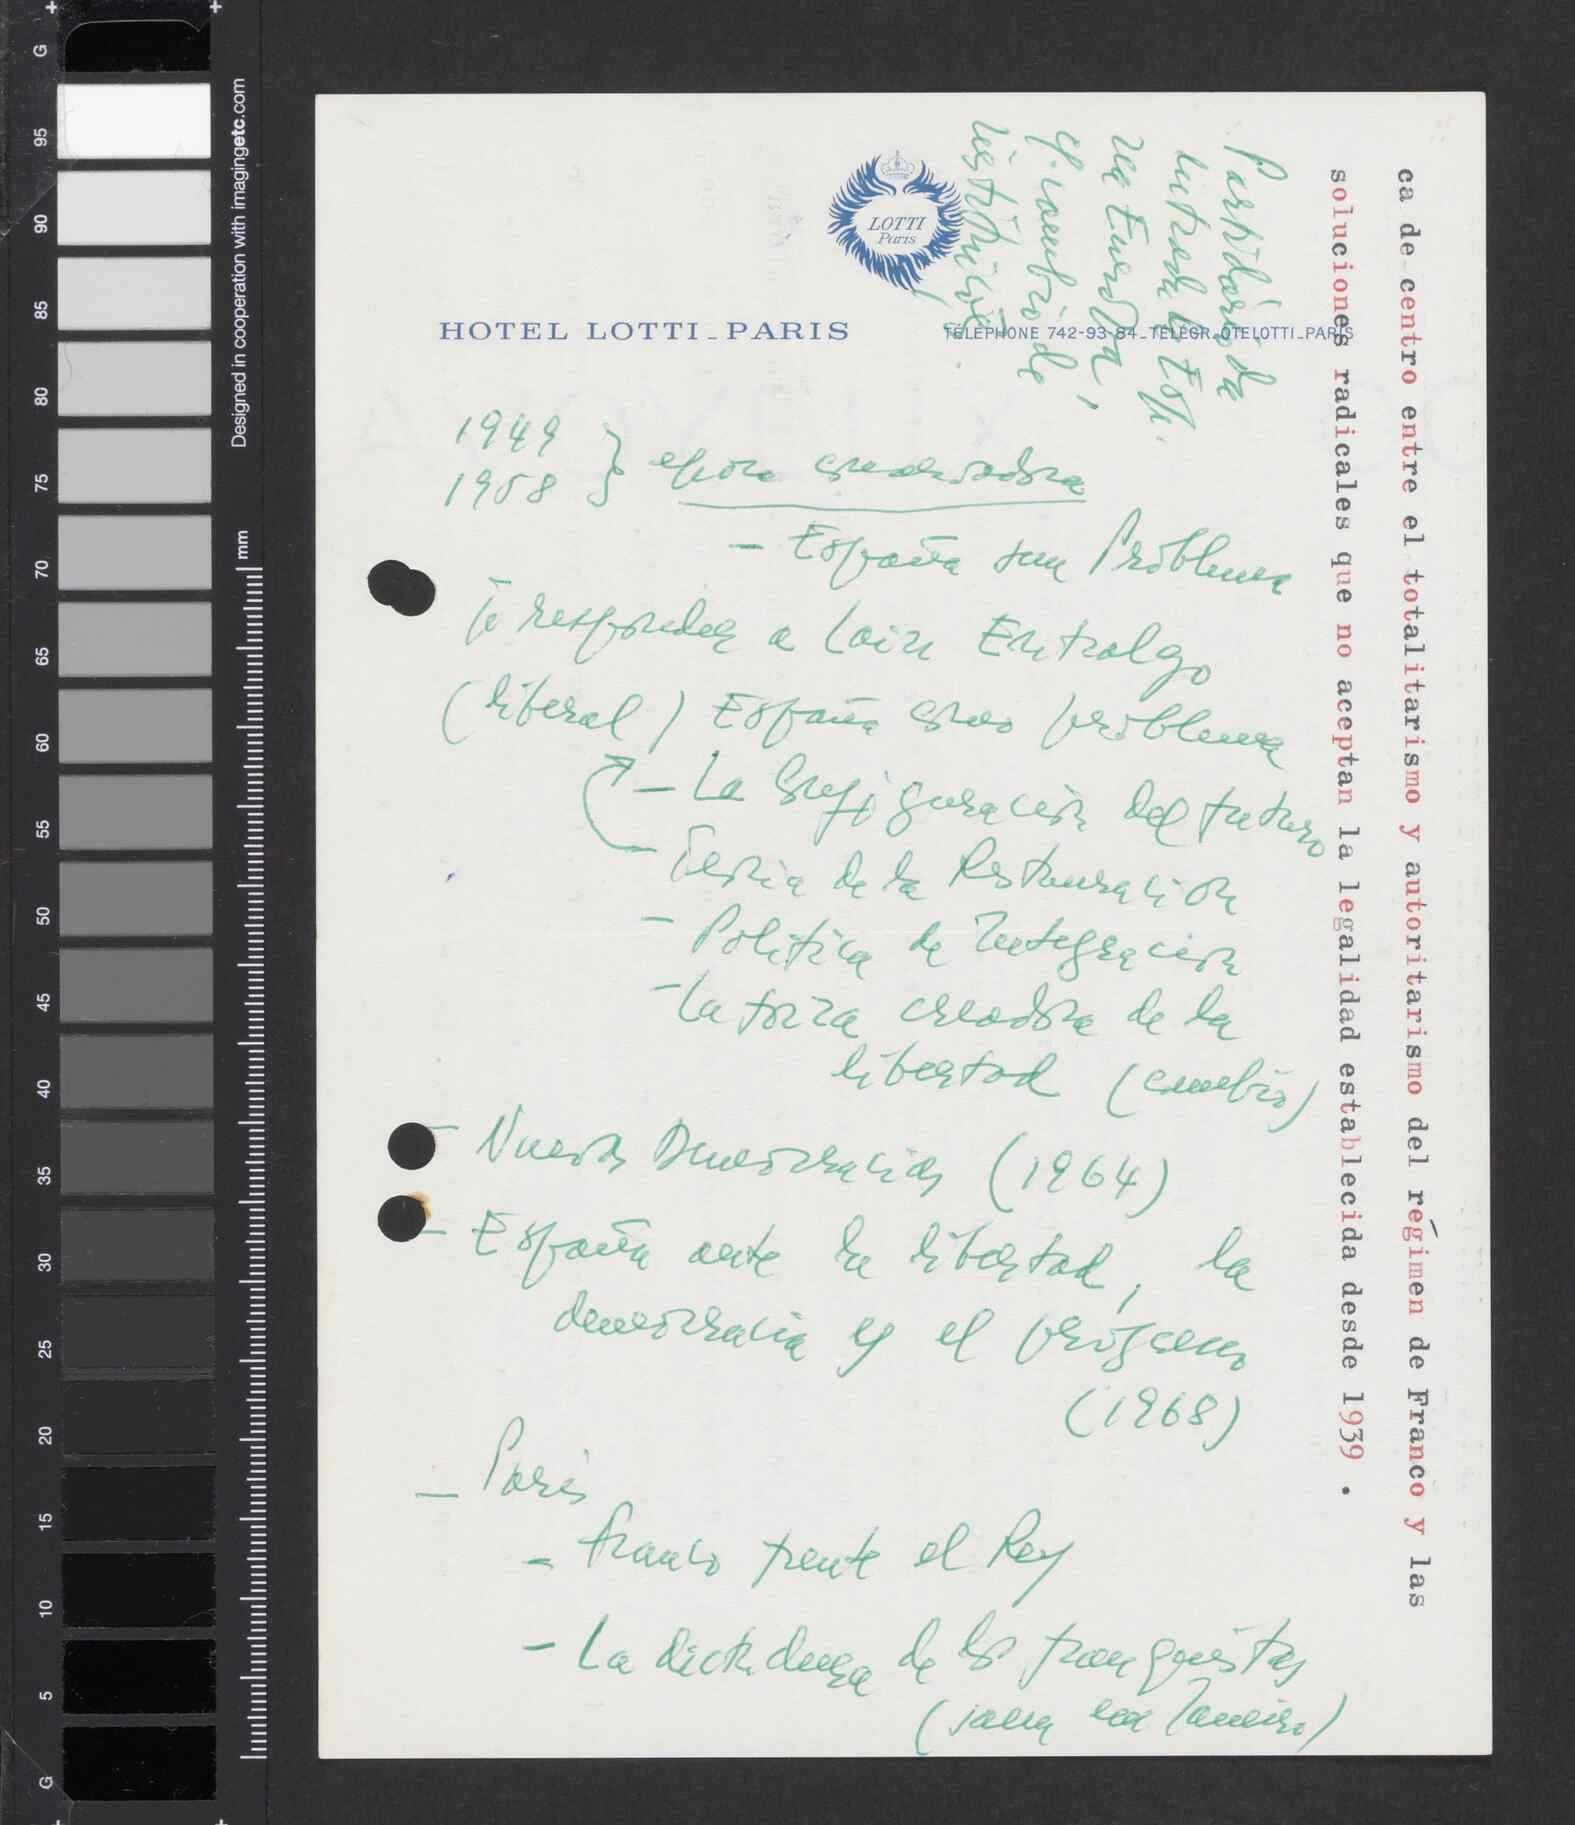 G
95
90
85
80
75
70
65
60
55
50
45
40
35
30
25
20
15
10
5
G
Designed in cooperation with imagingetc.com
mm
LOTTI
Paris
HOTEL LOTTI_PARIS
TÉLÉPHONE 742-93-84_TELEGR_OTELOTTI_PARIS
Partidario de
entrada Esp.
en Europa,
y cambio de
instituciones
ca de centro entre el totalitarismo y autoritarismo del régimen de Franco y las
soluciones radicales que no aceptan la legalidad establecida desde 1939 .
1949
1958 } época conservadora
- España sin Problema
responder a Lain Entralgo
(liberal) España como problema
- La configuración del futuro
Teoria de la Restauración
- Politica de Integracion
- La forza creadora de la
libertad (cambio)
- Nuevas Democracias (1964)
- España ante la libertad, la
democracia y el progreso
(1968)
- Paris
- Franco frente el Rey
- La dictadura de los franquistas